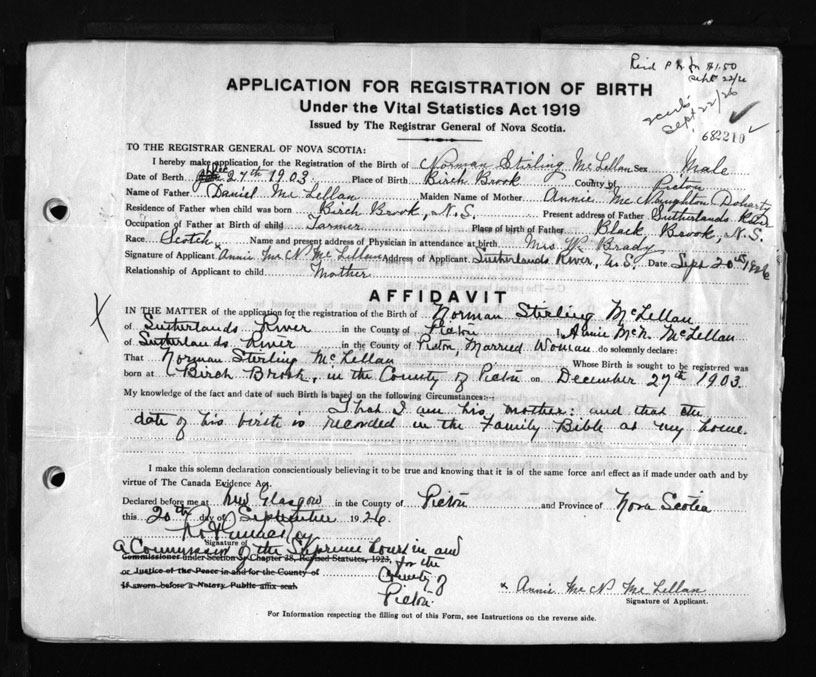 Rec'd P.N. for $1.50
Sept 22/26
Sept 22/26
682210
APPLICATION FOR REGISTRATION OF BIRTH
Under the Vital Statistics Act 1919
Issued by The Registrar General of Nova Scotia.
TO THE REGISTRAR GENERAL OF NOVA SCOTIA:
I hereby make application for the Registration of the Birth of Norman Stirling McLellan Sex Male
Date of Birth Dec 27th 1903. Place of Birth Birch Brook County of Pictou
Name of Father Daniel McLellan Maiden Name of Mother Annie McNaughton Doharty
Residence of Father when child was born Birch Brook, N.S. Present address of Father Sutherlands River
Occupation of Father at Birth of child Farmer Place of birth of Father Black Brook, N.S.
Race Scotch Name and present address of Physician in attendance at birth Mrs W. Brady
Signature of Applicant x Annie Mc N McLellan Address of Applicant Sutherlands River, N.S. Date Sept 20th 1926
Relationship of Applicant to child Mother
AFFIDAVIT
X
IN THE MATTER of the application for the registration of the Birth of Norman Stirling McLellan
of Sutherlands River in the County of Pictou I, Annie McN. McLellan
of Sutherlands River in the County of Pictou, Married Woman do solemnly declare:
That Norman Stirling McLellan Whose Birth is sought to be registered was
born at Birch Brook, in the County of Pictou on December 27th 1903.
My knowledge of the fact and date of such Birth is based on the following Circumstances:-
That I am his mother: and that the
date of his birth is recorded in the Family Bible at my home.
I make this solemn declaration conscientiously believing it to be true and knowing that it is of the same force and effect as if made under oath and by
virtue of The Canada Evidence Act.
Declared before me at New Glasgow in the County of Pictou and Province of Nova Scotia
this 20th day of September 1926.
Signature of
A Commissioner of the Supreme Court in and
Commissioner under Section 3, Chapter 38, Revised Statutes, 1923, for the
or Justice of the Peace in and for the County of County of
if sworn before a Notary Public affix seal Pictou
x Annie Mc N McLellan
Signature of Applicant.
For Information respecting the filling out of this Form, see Instructions on the reverse side.